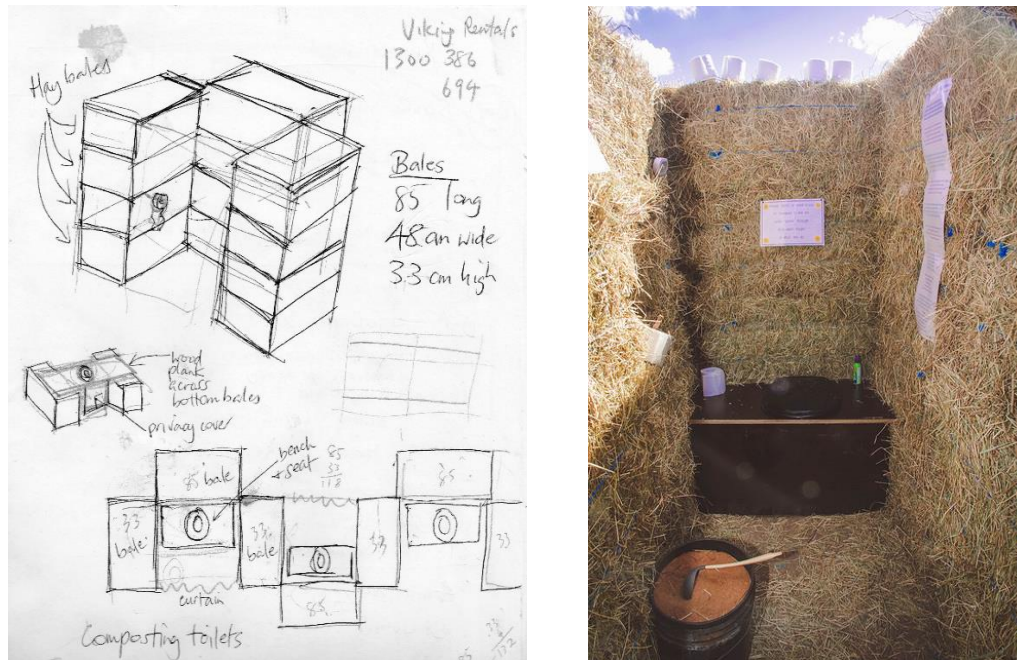 Viking Rentals
1300 386
694
Hay bales
Bales
85 long
48cm wide
33 cm high
wood
plank
across
bottom bales
privacy cover
bench
+ seat
85
33
118
85 bale
85
33
bale
33
bale
33
33
curtain
85
Composting toilets